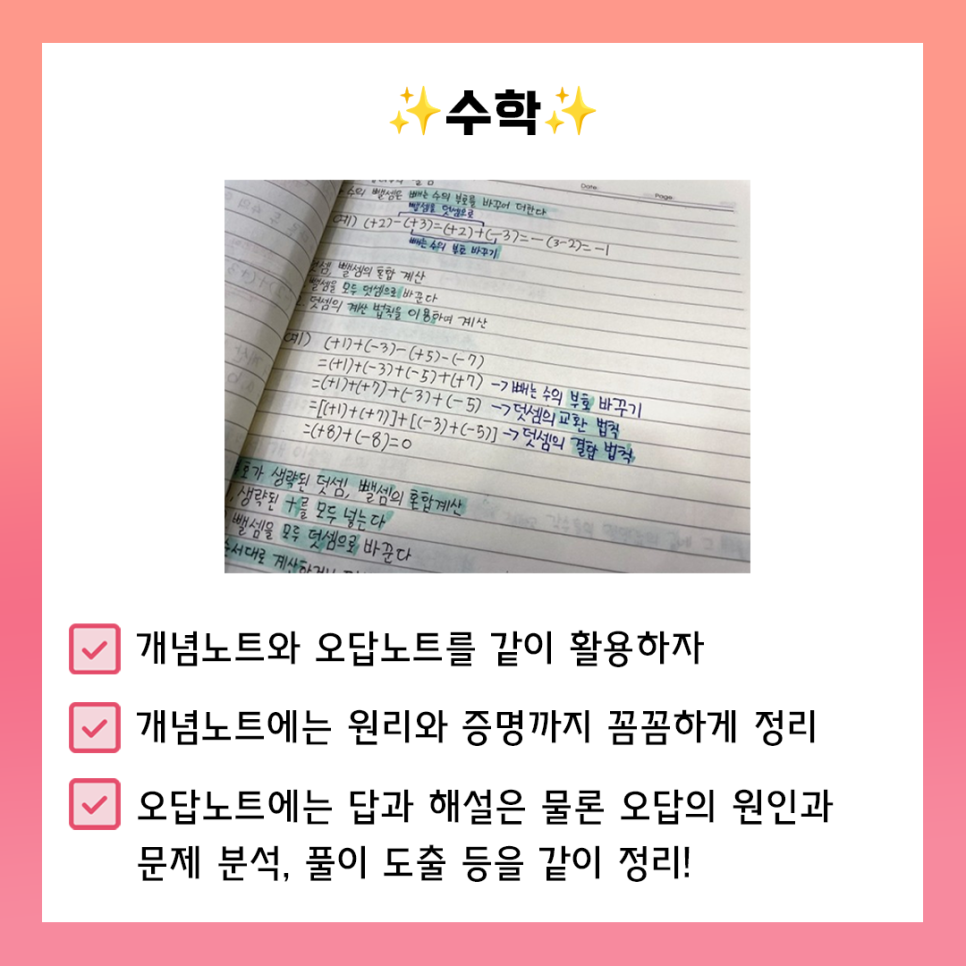 ✨수학✨
Date:
Page:
수의 뺄셈은 빼는 수의 부호를 바꾸어 더한다
뺄셈을 덧셈으로
예) (+2)-(+3)=(+2)+(-3)=-(3-2)=-1
빼는 수의 부호 바꾸기
덧셈, 뺄셈의 혼합 계산
뺄셈을 모두 덧셈으로 바꾼다
덧셈의 계산 법칙을 이용하여 계산
예) (+1)+(-3)-(+5)-(-7)
=(+1)+(-3)+(-5)+(+7) → 빼는 수의 부호 바꾸기
=(+1)+(+7)+(-3)+(-5) → 덧셈의 교환 법칙
=[(+1)+(+7)]+[(-3)+(-5)] → 덧셈의 결합 법칙
=(+8)+(-8)=0
부호가 생략된 덧셈, 뺄셈의 혼합계산
생략된 +를 모두 넣는다
뺄셈을 모두 덧셈으로 바꾼다
순서대로 계산
개념노트와 오답노트를 같이 활용하자
개념노트에는 원리와 증명까지 꼼꼼하게 정리
오답노트에는 답과 해설은 물론 오답의 원인과
문제 분석, 풀이 도출 등을 같이 정리!